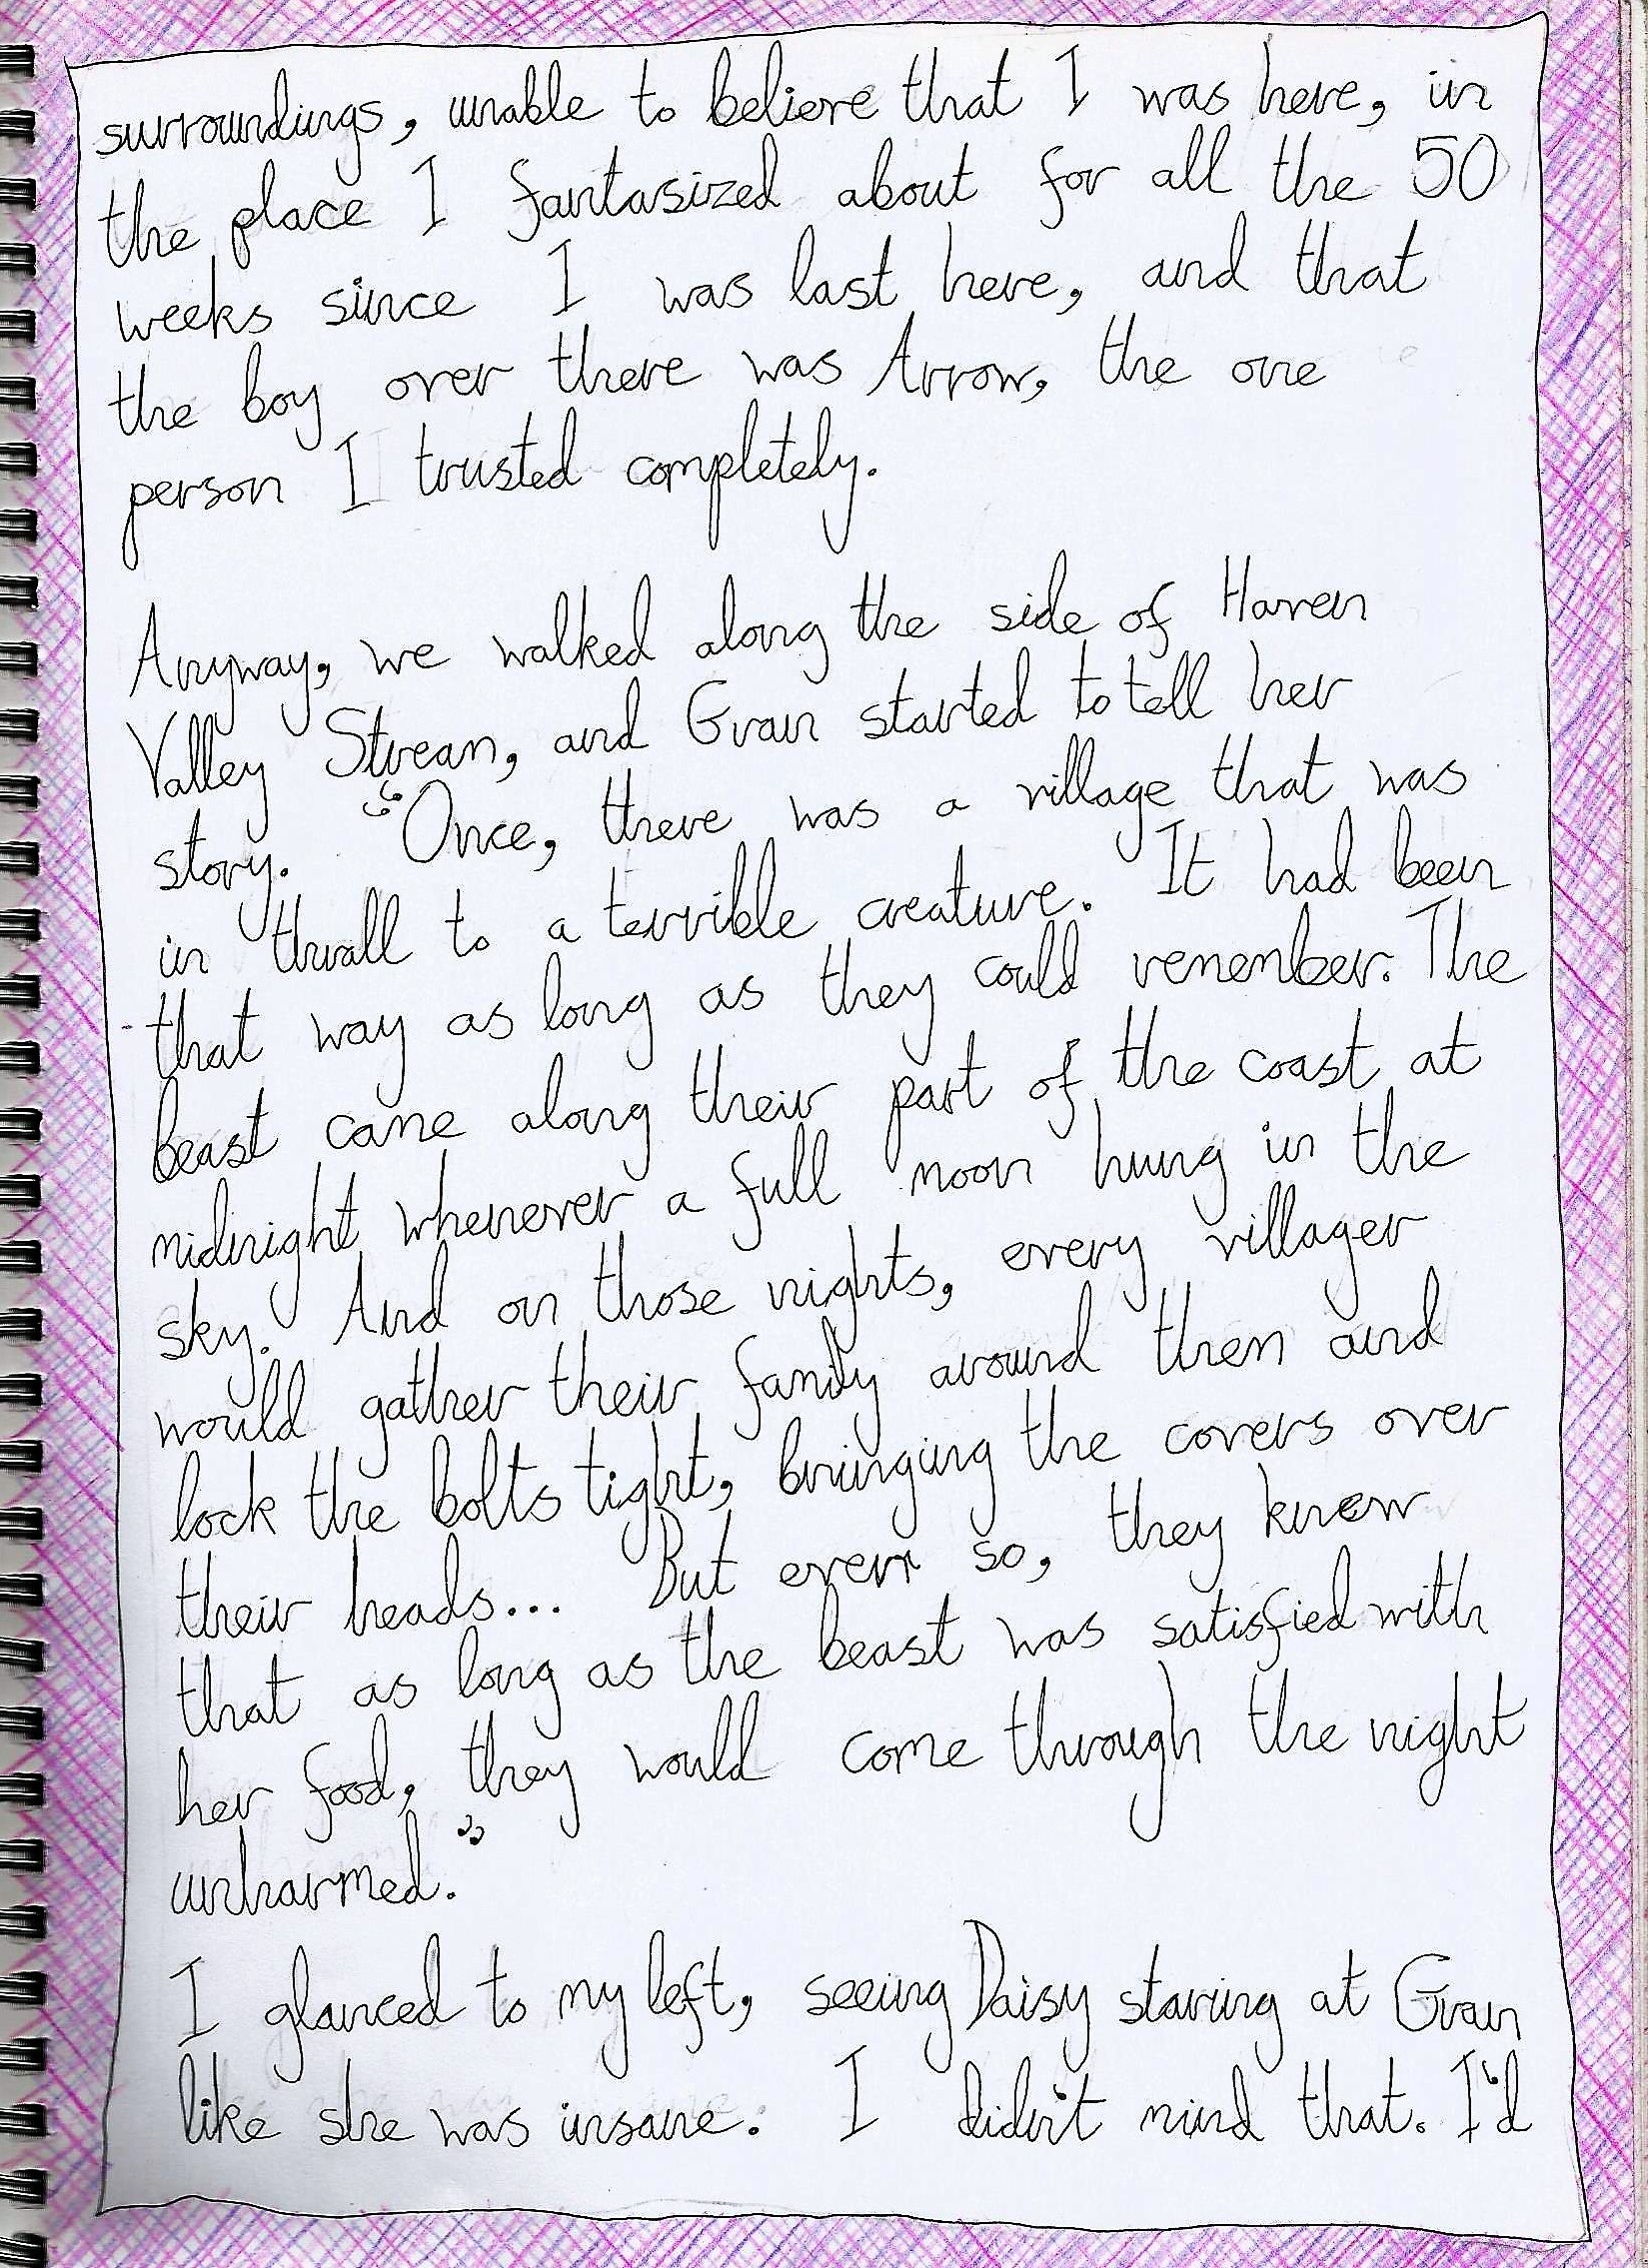 surroundings, unable to believe that I was here, in
the place I fantasized about for all the 50
weeks since I was last here, and that
the boy over there was Arrow, the one
person I trusted completely.
Anyway, we walked along the side of Haven
Valley Stream, and Gran started to tell her
story. “Once, there was a village that was
in thrall to a terrible creature. It had been
that way as long as they could remember. The
beast came along their part of the coast at
midnight whenever a full moon hung in the
sky. And on those nights, every villager
would gather their family around them and
lock the bolts tight, bringing the covers over
their heads... But even so, they knew
that as long as the beast was satisfied with
her food, they would come through the night
unharmed.”
I glanced to my left, seeing Daisy staring at Gran
like she was insane. I didn't mind that. I'd